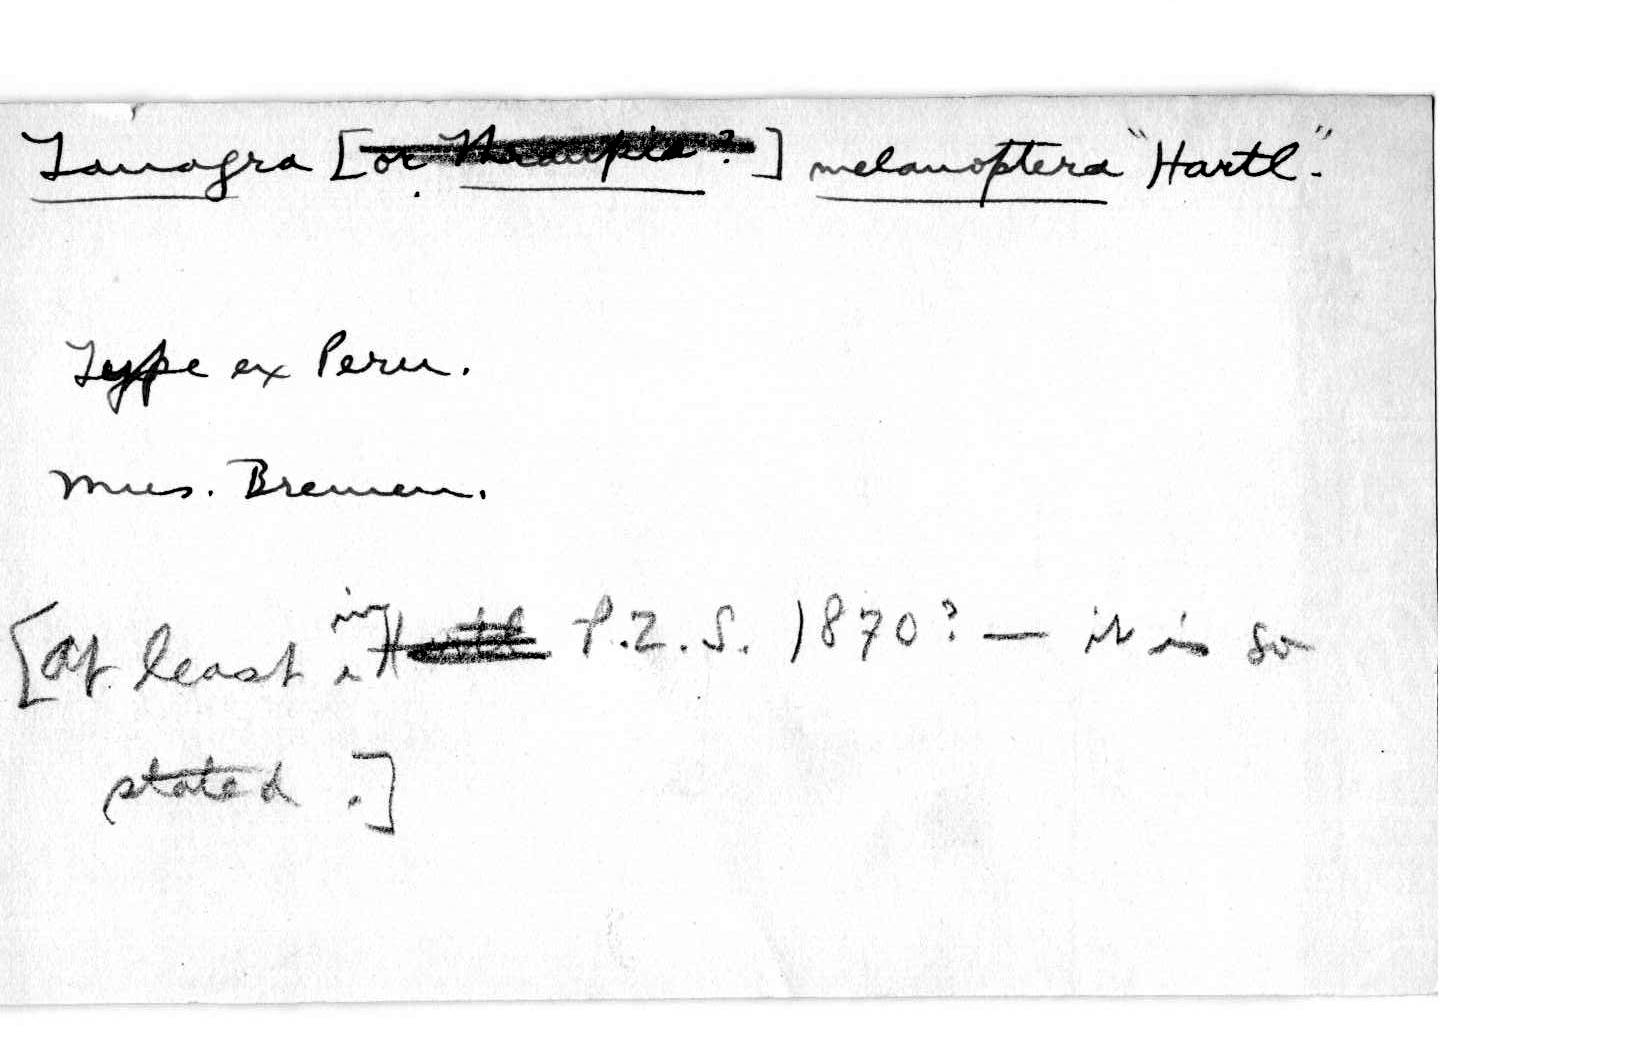 Tanagra [or Thraupis?] melanoptera "Hartl."
Type ex Peru.
Mus. Bremen.
[at least in Hartl P.Z.S. 1870? — it is so
stated.]